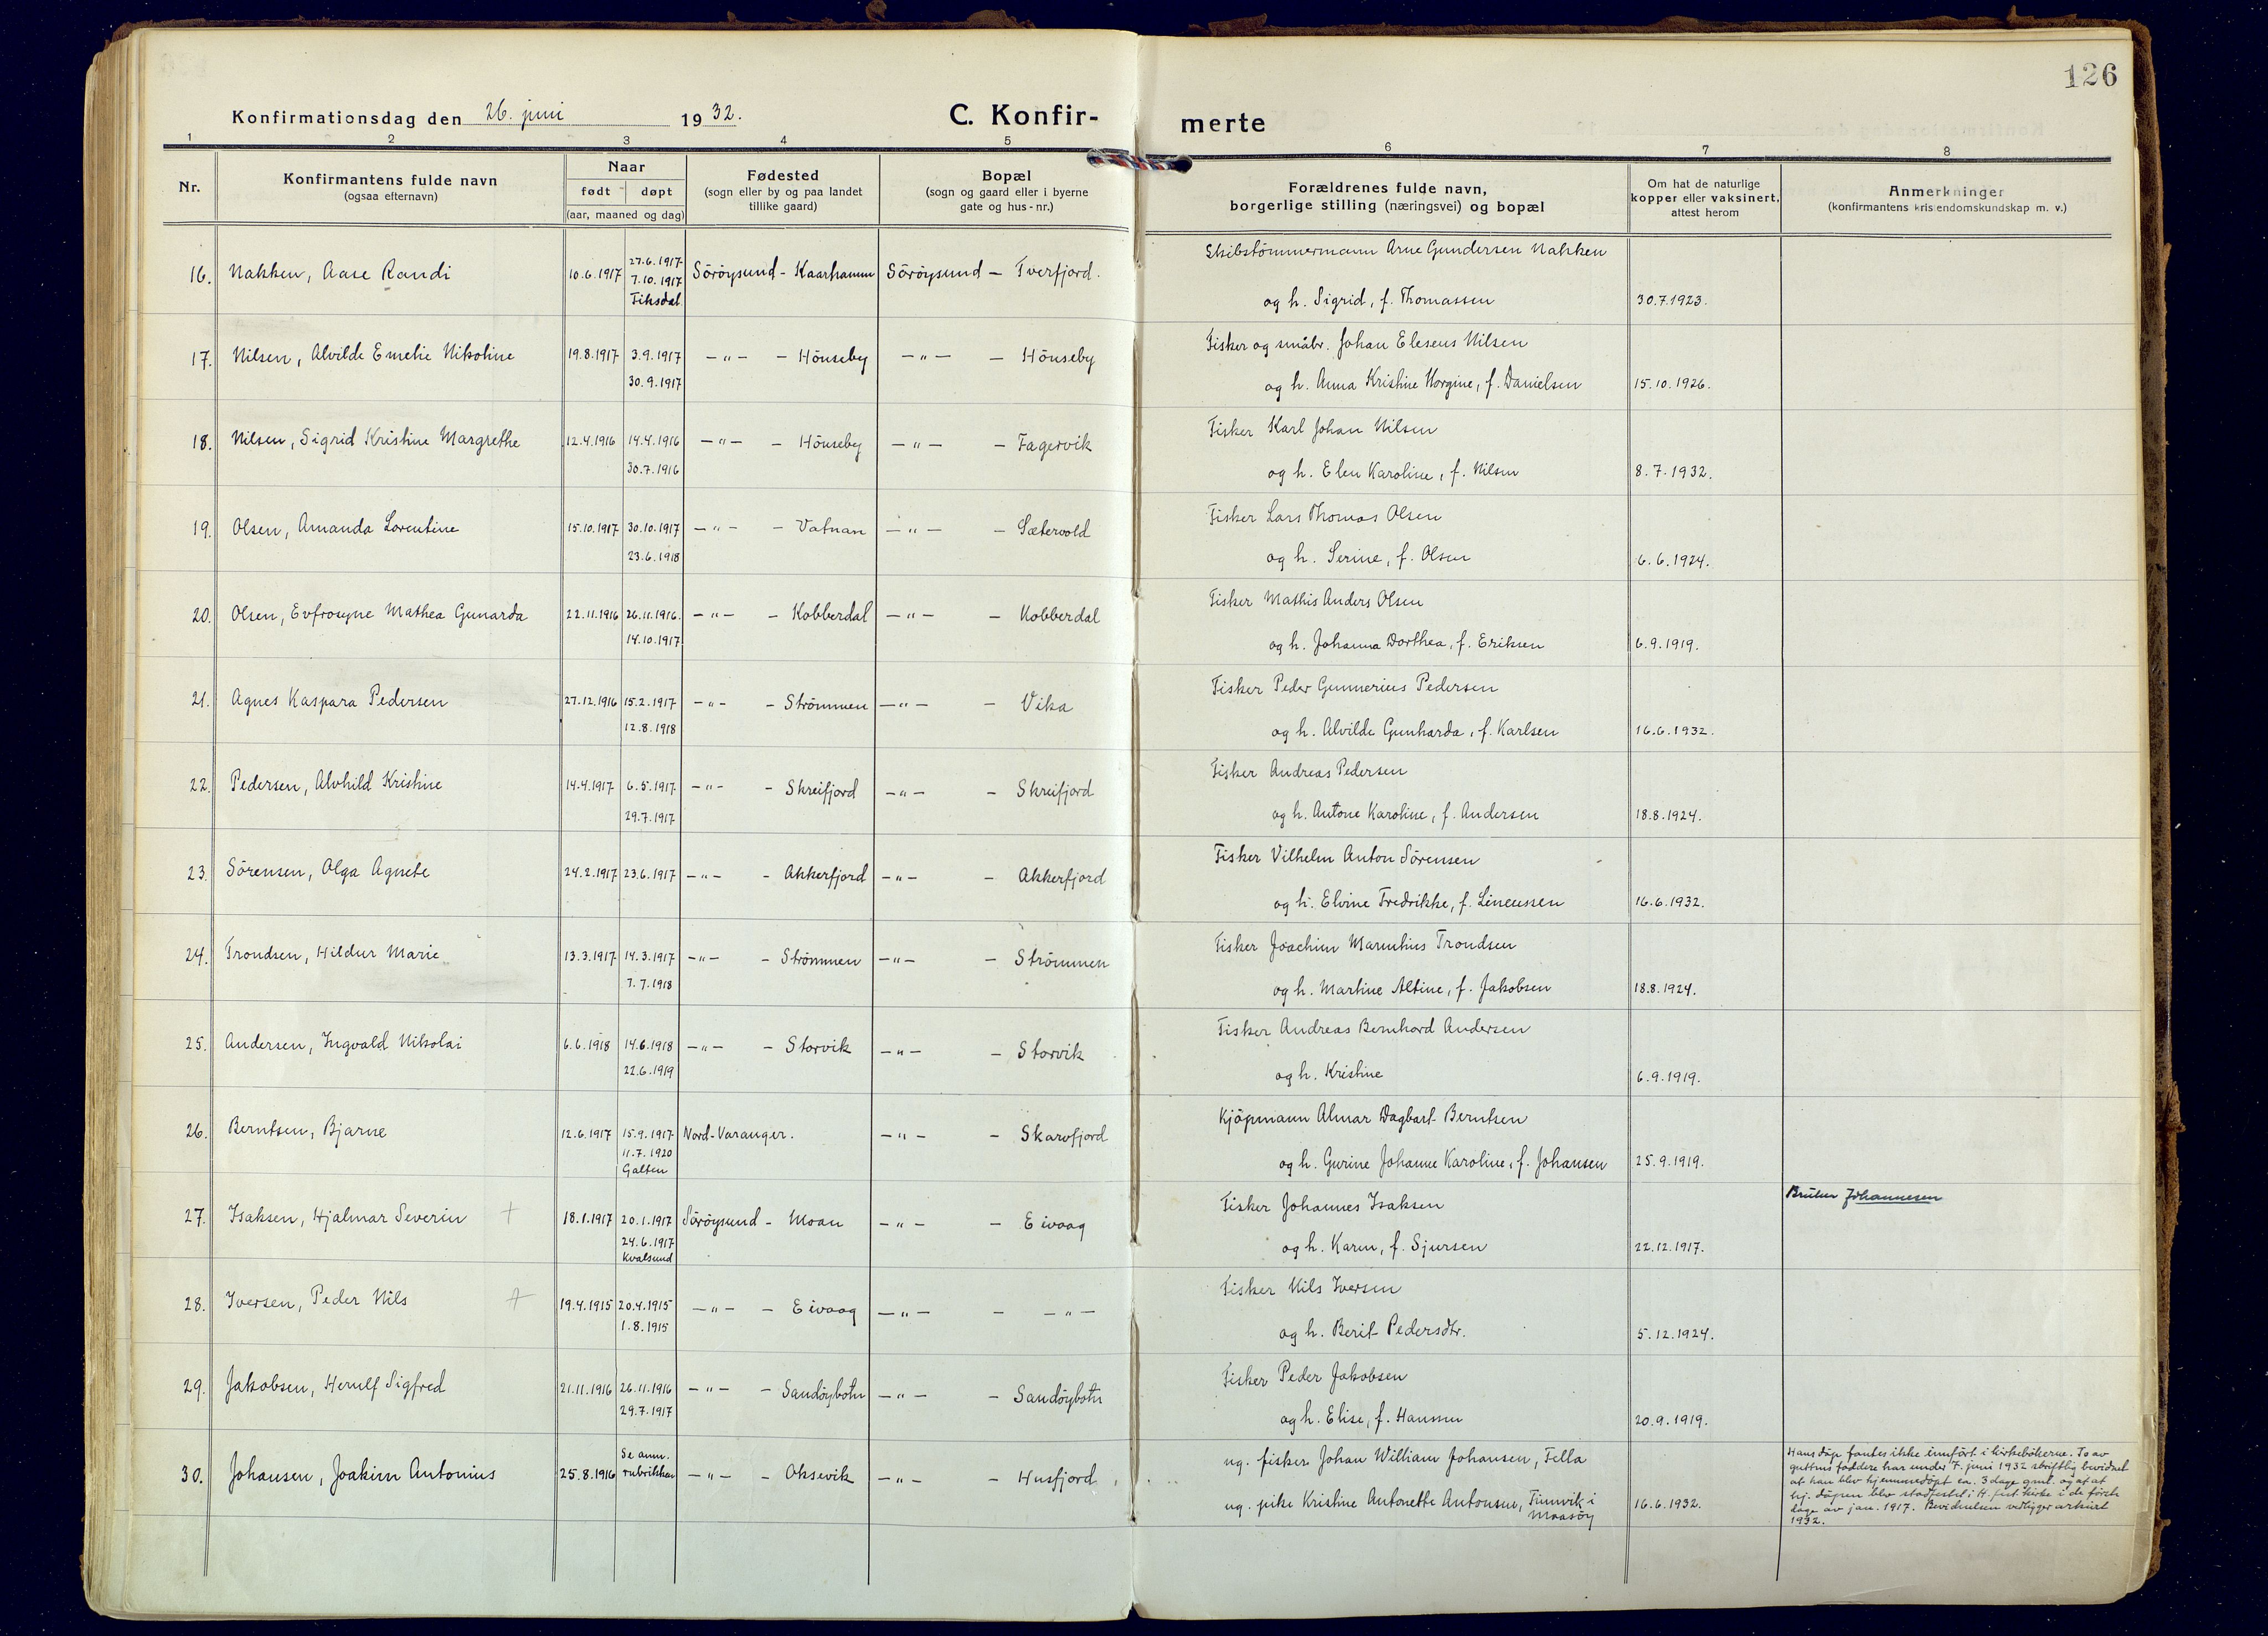 126
Konfirmationsdag den 26. juni 1932.
C. Konfir-
merte
1 2 3 4 5 6 7 8
Nr.
Konfirmantens fulde navn
(ogsaa efternavn)
Naar
født døpt
(aar, maaned og dag)
Fødested
(sogn eller by og paa landet
tillike gaard)
Bopæl
(sogn og gaard eller i byerne
gate og hus-nr.)
Forældrenes fulde navn,
borgerlige stilling (næringsvei) og bopæl
Om hat de naturlige
kopper eller vaksinert,
attest herom
Anmerkninger
(konfirmantens kristendomskundskap m. v.)
Skibstömmermann Arne Gundersen Nakken
27.6.1917
16. Nakken, Aase Randi 10.6.1917 7.10.1917 Söröysund - Kaarhamn Söröysund - Tverfjord.
Fiksdal
og h. Sigrid, f. Thomassen 30.7.1923.
Fisker og småbr. Johan Eleseus Nilsen
17. Nilsen, Alvilde Emelie Nikoline 19.8.1917 3.9.1917 -"- - Hönseby -"- - Hönseby
30.9.1917
og h. Anna Kristine Norgine, f. Danielsen 15.10.1926.
Fisker Karl Johan Nilsen
18. Nilsen, Sigrid Kristine Margrethe 12.4.1916 14.4.1916 -"- - Hönseby -"- - Fagervik
30.7.1916
og h. Elen Karoline, f. Nilsen 8.7.1932.
Fisker Lars Thomas Olsen
19. Olsen, Amanda Lorentine 15.10.1917 30.10.1917 -"- - Vatnan -"- - Sætervold
23.6.1918
og h. Serine, f. Olsen 6.6.1924.
Fisker Mathis Anders Olsen
20. Olsen, Evfrosyne Mathea Gunarda 22.11.1916 26.11.1916. -"- - Kobberdal -"- - Kobberdal
14.10.1917
og h. Johanna Dorthea, f. Eriksen 6.9.1919.
Fisker Peder Gunnerius Pedersen
21. Agnes Kaspara Pedersen 27.12.1916 15.2.1917 -"- - Strömmen -"- - Vika
12.8.1918
og h. Alvilde Gunharda, f. Karlsen 16.6.1932.
Fisker Andreas Pedersen
22. Pedersen, Alvhild Kristine 14.4.1917 6.5.1917 -"- - Skreifjord -"- - Skreifjord
29.7.1917
og h. Antone Karoline, f. Andersen 18.8.1924.
Fisker Vilhelm Anton Sörensen
23. Sörensen, Olga Agnete 24.2.1917 23.6.1917 -"- - Akkerfjord -"- - Akkerfjord
og h. Elvine Fredrikke, f. Lineussen 16.6.1932.
Fisker Joachim Marentius Trondsen
24. Trondsen, Hildur Marie 13.3.1917 14.3.1917 -"- - Strömmen -"- - Strömmen
7.7.1918
og h. Martine Altine, f. Jakobsen 18.8.1924.
Fisker Andreas Bernhard Andersen
25. Andersen, Ingvald Nikolai 6.6.1918 14.6.1918 -"- - Storvik -"- - Storvik
22.6.1919
og h. Kristine 6.9.1919.
Kjöpmann Almar Dagbart Berntsen
26. Berntsen, Bjarne 12.6.1917 15.9.1917 Nord-Varanger. -"- - Skarvfjord
11.7.1920
Galten
og h. Gurine Johanne Karoline, f. Johansen 25.9.1919.
Fisker Johannes Isaksen Bruker Johannesen
27. Isaksen, Hjalmar Severin + 18.1.1917 20.1.1917 Söröysund - Moan -"- - Eivaag
24.6.1917
Kvalsund
og h. Karen, f. Sjursen 22.12.1917.
Fisker Nils Iversen
28. Iversen, Peder Nils + 19.4.1915 20.4.1915 -"- - Eivaag -"- - -"-
1.8.1915
og h. Berit Pedersdtr. 5.12.1924.
Fisker Peder Jakobsen
29. Jakobsen, Herulf Sigfred 21.11.1916 26.11.1916 -"- - Sandöybotn -"- - Sandöybotn
29.7.1917
og h. Elise, f. Hansen 20.9.1919.
Se anm.
30. Johansen, Joakim Antonius 25.8.1916 rubrikken -"- - Oksevik -"- - Husfjord
ug. fisker Johan William Johansen, Fella
ug. pike Kristine Antonette Antonsen, Finnvik i
Maasöy
16.6.1932.
Hans dåp fantes ikke innfört i kirkebökerne. To av
guttens faddere har under 7. juni 1932 skriftlig bevidnet
at han blev hjemmedöpt ca. 3 dage gml. og at
hj. dåpen blev stadfestet i H. fest kirke i de förste
dage av jan. 1917. Bevidnelsen vedligger arkivet
1932.